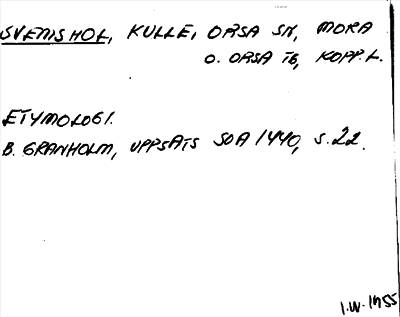 SVENSHOL, KULLE, ORSA SN, MORA
O. ORSA TG, KOPP. L.
ETYMOLOGI.
B. GRANHOLM, UPPSATS SOA 1440, S. 22.
I.W. 1955